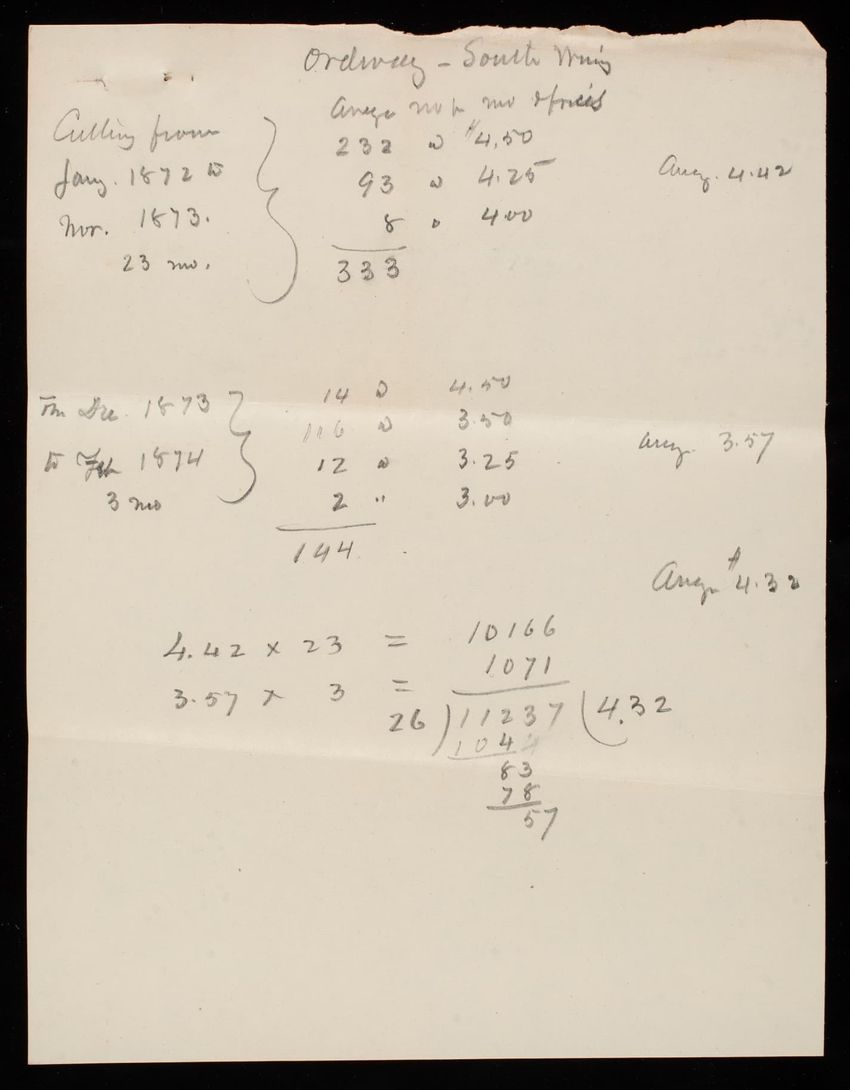 Ordway - South Wing
Averge no pr mo & prices
Cutting from
Jany. 1872 to
Nov. 1873.
23 mo.
232 @ $4.50
93 @ 4.25
8 " 4.00
333
Averg. 4.42
Dec. 1873
to Feb 1874
3 mo
14 @ 4.50
116 @ 3.50
12 @ 3.25
2 " 3.00
144
Averg. 3.57
Averge $4.32
4.42 x 23 = 10166
3.57 x 3 = 1071
26 ) 11237 ( 4.32
104
83
78
57